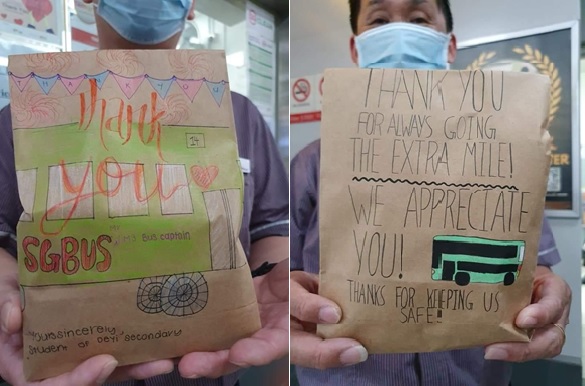 THANK YOU
Thank
14
you
SGBUS
my Bus captain
Yours sincerely,
Student of Deyi Secondary
THANK YOU
FOR ALWAYS GOING
THE EXTRA MILE!
WE APPRECIATE
YOU!
THANKS FOR KEEPING US
SAFE!